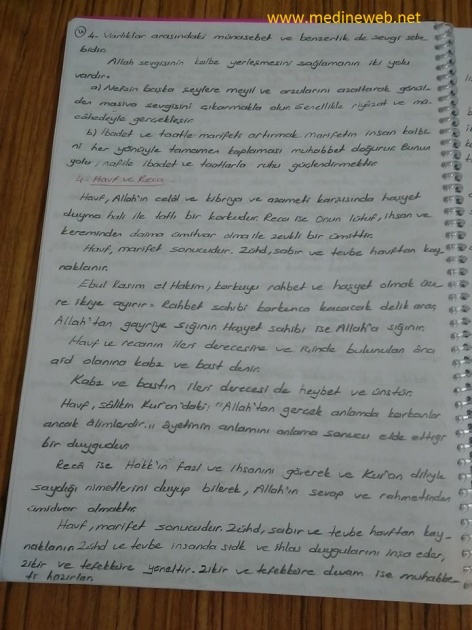 www.medineweb.net
4. Varlıklar arasındaki münasebet ve benzerlik de sevgi sebe
bidir.
Allah sevgisinin kalbe yerleşmesini sağlamanın iki yolu
vardır.
a) Nefsin başka şeylere meyil ve arzularını azaltarak gönül-
den masiva sevgisini çıkarmakla olur. Genellikle riyâzat ve mü-
câhedeyle gerçekleşir.
b) İbadet ve taatle marifeti artırmak. marifetin insan kalbi-
ni her yönüyle tamamen kaplaması muhabbet doğurur. Bunun
yolu, nafile ibadet ve taatlarla ruhu güçlendirmektir.
4. Havf ve Recâ
Havf, Allah'ın celâl ve kibriya ve azameti karşısında haşyet
duyma hali ile tatlı bir korkudur. Recâ ise Onun lütuf, ihsan ve
kereminden daima ümitvar olma ile zevkli bir ümittir.
Havf, marifet sonucudur. Zühd, sabır ve tevbe havftan kay-
naklanır.
Ebul Kasım el Hakim, korkuyu rahbet ve haşyet olmak üze
re ikiye ayırır. Rahbet sahibi korkunca kaçacak delik arar,
Allah'tan gayriye sığınır. Haşyet sahibi ise Allah'a sığınır.
Havf ve recanın ileri derecesine ve içinde bulunulan âna
aid olanına kabz ve bast denir.
Kabz ve bastın ileri derecesi de heybet ve ünstür.
Havf, sâlikin Kur'an'daki; "Allah'tan gerçek anlamda korkanlar
ancak âlimlerdir." âyetinin anlamını anlama sonucu elde ettiği
bir duygudur.
Recâ ise Hakk'ın fazl ve ihsanını görerek ve Kur'an diliyle
saydığı nimetlerini duyup bilerek, Allah'ın sevap ve rahmetinden
ümidvar olmaktır.
Havf, marifet sonucudur. Zühd, sabır ve tevbe havftan kay-
naklanır. Zühd ve tevbe insanda sıdk ve ihlas duygularını inşa eder,
zikir ve tefekküre yöneltir. Zikir ve tefekküre devam ise muhabbe-
ti hazırlar.